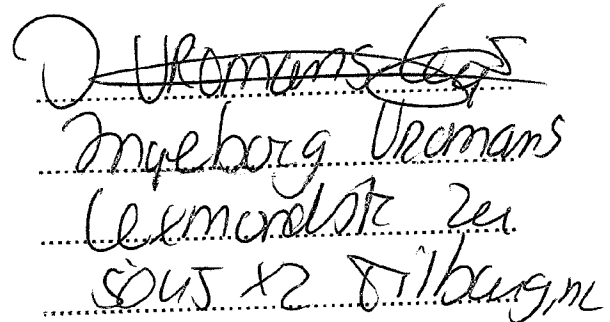 D Vromans
Ingeborg Vromans
Lexmondstr 24
5045 XZ Tilburg, NL